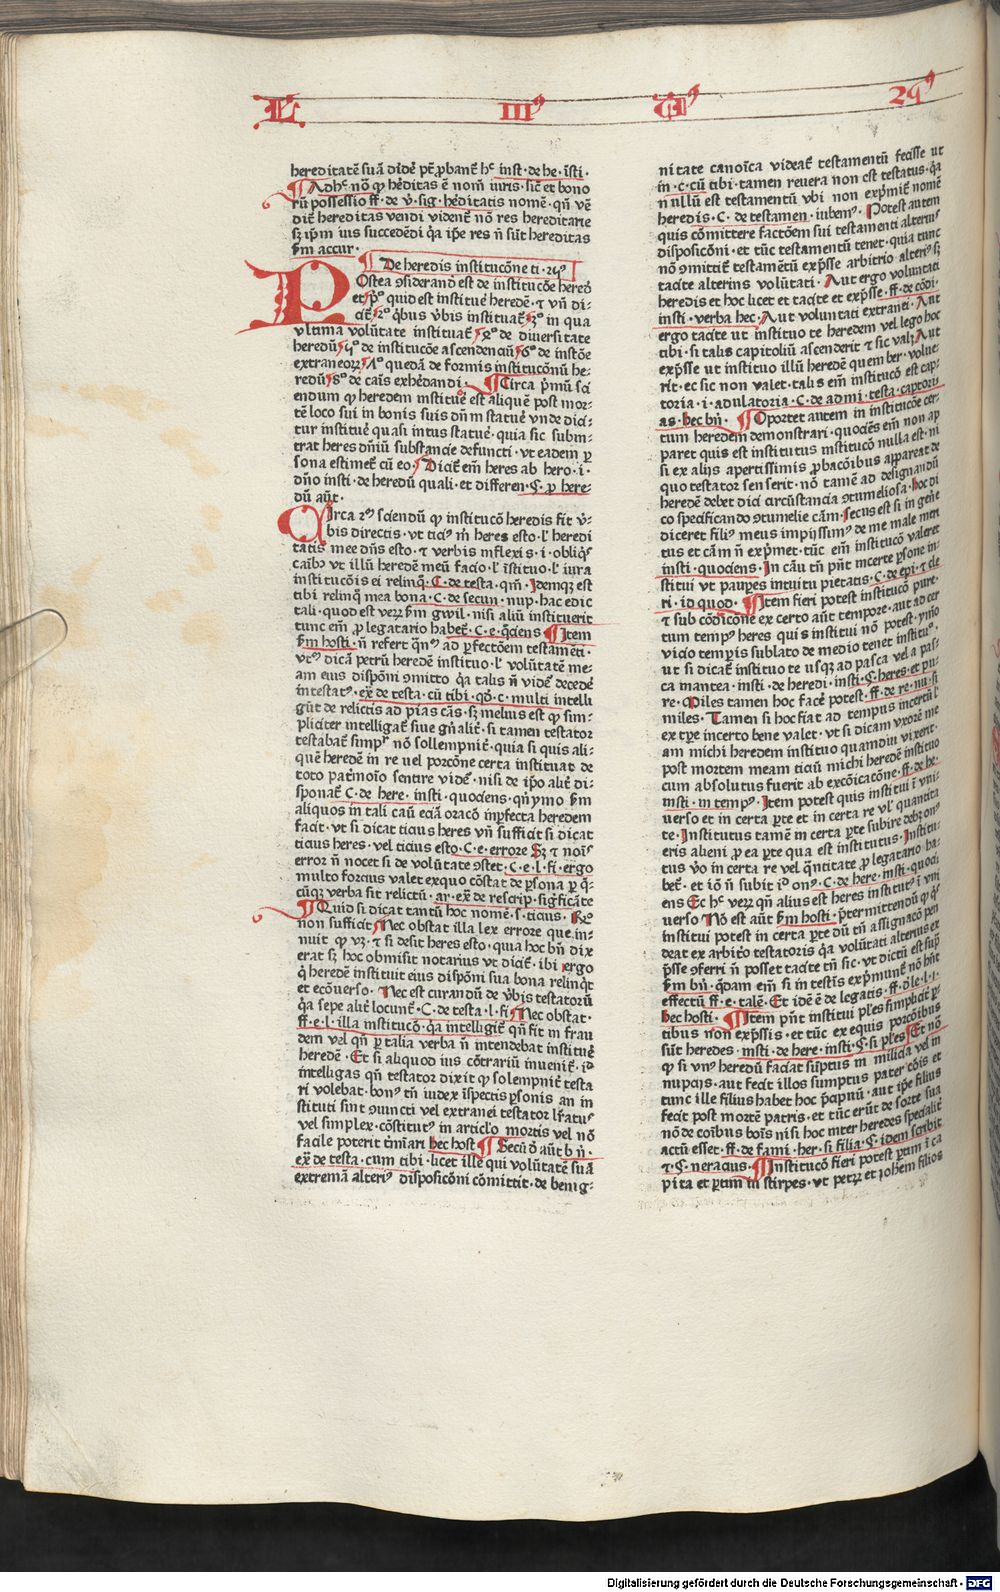 L III⁹ T⁹ 29⁹
hereditatē suā didē pt̄ ꝓbanē hͨ inst · de he · īsti ·
¶ Adhͨ nō ꝙ hēditas ē nom̄ iuris · sic̄ et bono
rū possessio ff · de v̄ · sig · hēditatis nomē · qn̄ vē
dit̄ hereditas vendi videnē nō res hereditarie
sꝫ ip̄m ius succedēdi q̄a ip̄e res n̄ sūt hereditas
ẜm accur ·
¶ De heredis institucōne ti ·
Postea ꝯsiderand̄ est de institucōe heredū
et pͦ quid est instituē heredē · ⁊ vn̄ di-
cit̄ 2ͦ q̄bus v̄bis instituat̄ 3ͦ in qua
vltima volūtate instituat̄ 4ͦ de diuersitate
heredū 5ͦ de institucōe ascendenciū 6ͦ de instōe
extraneoꝝ 7ͦ quedā de formis institucōnū he-
redū 8ͦ de cāis exhēdandi · ¶ Circa pͥmū sci
endum ꝙ heredem instituē est aliquē post mor-
tē loco sui in bonis suis dn̄m statuē vnde dici-
tur instituē quasi intus statuē · quia sic subin-
trat heres dn̄iū substancie defuncti · vt eadem ꝑ
sona estimet̄ cū eo · Dicit̄ em̄ heres ab hero · i ·
dn̄o insti · de heredū quali · et differen · §· ꝓ here-
dū aūt ·
Circa 2ͫ sciendū ꝙ institucō heredis fit v̄-
bis directis · vt ticiꝰ m̄ heres esto · l̄ heredi
tatis mee dn̄s esto · ⁊ verbis inflexis · i · obliqͥs
caib̄ꝰ vt illū heredē meū facio · l̄ īstituo · l̄ iura
institucōis ei relinq̄ · C · de testa · qm̄ · Idemqꝫ est
tibi relinq̄ mea bona · C · de secun · nup · hac edic
tali · quod est veꝝ ẜm gwil · nisi aliū instituerit
tunc em̄ ꝓ legatario habet̄ · C · e · q̄ciens ¶ Item
ẜm hosti · n̄ refert qn̄ꝰ ad ꝑfectōem testamēti ·
vtꝰ dicā petrū heredē instituo · l̄ volūtatē me-
am eius disponi ꝯmitto q̄a talis n̄ videt̄ decedē
intestatꝰ · ex̄ de testa · cū tibi · qͦ · c · multi intelli
gūt de relictis ad pias cās · sꝫ melius est ꝙ sim-
pliciter intelligat̄ siue gn̄alit̄ · si tamen testator
testabat̄ simpͬ nō sollempnit̄ · quia si quis ali-
quē heredē in re uel porcōne certa instituat de
toto pat̄moīo sentire videt̄ · nisi de ip̄o alit̄ di-
sponat̄ C · de here · insti · quociens · qn̄ymo ẜm
aliquos in tali caū eciā oracō inꝑfecta heredem
facit · vt si dicat ticius heres vn̄ sufficit si dicat
ticius heres · vel ticius esto · C · e · errore Sꝫ ⁊ nois̄
error n̄ nocet si de volūtate ꝯstet · C · e · l · fi · ergo
multo forcius valet exquo cōstat de ꝑsona ꝑ q̄-
cūqꝫ verba sit relictū · ar · ex̄ de rescrip · sigficāte
¶ Quid si dicat tantū hoc nomē · s · ticius · Rͤ
non sufficit ¶ Nec obstat illa lex errore que in-
nuit ꝙ vꝫ · ⁊ si desit heres esto · quia hoc bn̄ dix
erat sꝫ hoc obmisit notarius vt dicit̄ · ibi ergo
q̄ heredē instituit eius disponi sua bona relinq̄t
et ecōuerso · Nec est curandū de v̄bis testatorū
q̄a sepe alit̄ locunt̄ · C · de testa · l · fi · Nec obstat ·
ff · e · l · illa institucō · q̄a intelligit̄ qn̄ fit in frau
dem vel qn̄ ꝑ talia verba n̄ intendebat instituē
heredē · Et si aliquod ius cōtrariū inuenit̄ · id
intelligas qn̄ testator dixit ꝙ solempnit̄ testa
ri volebat · bonꝰ tn̄ iudex īspectis ꝑsonis an in
stituti sint ꝯiuncti vel extranei testator l̄ratuꝰ
vel simplex · cōstitutꝰ in artic̄lo mortis vel nō
facile poterit t̄minari hec host ¶ Secūd̄ aūt b n̄ ·
ex̄ de testa · cum tibi · licet ille qui volūtatē suā
extremā alteriꝰ disposicōni cōmittit · de benig-
nitate canoīca videat̄ testamentū fecisse ut
in · c · cū tibi · tamen reuera non est testatus · q̄a
n̄ nullū est testamentū vbi non exp̄mit̄ nomē
heredis · C · de testamen · iubemꝰ · Potest autem
quis cōmittere factōem sui testamenti alteriꝰ
disposicōni · et tūc testamentū tenet · quia tunc
nō ꝯmittit̄ testamētū exp̄sse arbitrio alteriꝰ sꝫ
tacite alterius volūtati · Aut ergo voluntati
heredis et hoc licet et tacite et exp̄sse · ff · de cōdi ·
insti · verba hec · Aut voluntati extranei · Aut
ergo tacite ut instituo te heredem vel lego hoc
tibi · si talis capitoliū ascenderit ⁊ sic valꝫ Aut
exp̄sse ut instituo illū heredē quem ber · volue-
rit · ec sic non valet · talis em̄ institucō est cap-
toria · i · adulatoria · C · de admi · testa · captori
as · hec bn̄ · ¶ Oportet autem in institucōe cer-
tum heredem demonstrari · quociēs em̄ non ap
paret quis est institutus institucō nulla est · ni
si ex alijs apertissimis ꝓbacōibus appareat de
quo testator senserit · nō tamē ad designandū
heredē debet dici circūstancia ꝯtumeliosa · hoc di
co specificando ꝯtumelie cām · secus est si in gen̄e
diceret filiꝰ meus impijssimꝰ de me male meri
tus et cām n̄ exp̄met · tūc em̄ institucō valeret
insti · quociens · In cāu tn̄ pn̄t incerte ꝑsone in-
stitui vt pauꝑes intuitu pietatis · C · de epi · ⁊ cle
ri · id quod · ¶ Item fieri potest institucō pure ·
⁊ sub cōdicōne ex certo aūt tempore · aut ad cer
tum tempꝰ heres qui s institui nō potest · ymo
vicio tempis sublato de medio tenet institu ·
ut si dicat̄ instituo te usqꝫ ad pasca vel a pas-
ca mantea · insti · de heredi · insti · §· heres · et pu-
re · Miles tamen hoc facē potest · ff · de re · nu · si
miles · Tamen si hoc fiat ad tempus incertū l̄
ex tꝑe incerto bene valet · vt si dicam vxorē me
am michi heredem instituo quamdiu vixerit ·
post mortem meam ticiū michi heredē instituo
cum absolutus fuerit ab excōicacōne · ff · de he-
insti · in tempꝰ · Item potest quis institui ī vni-
uerso et in certa ꝑte et in certa re vl̄ quantita
te · Institutus tamē in certa ꝑte subire debꝫ onꝰ
eris alieni ꝓ ea ꝑte qua est institutus · Institu-
tus v̄o in certa re vel qn̄titate ꝓ legatario ha-
bet̄ · et iō n̄ subit id onꝰ · C · de here · insti · quoci
ens Ec hͨ veꝝ qn̄ alius est heres institutꝰ ī vni
uerso Nō est aūt ẜm hosti · p̄termittendū ꝙ q̄s
institui potest in certa ꝑte dū tn̄ assignacō pen
deat ex arbitͦ testatoris q̄a volūtati alterius ex
p̄sse ꝯferri n̄ posset tacite tn̄ sic · vt dictū est supͣ
ẜm bn̄ · q̄dam em̄ si in testis exp̄munt̄ nō hn̄t
effectū ff · e · talē · Et idē ē de legatis · ff · d̄le · l · i ·
hec hosti · ¶ Item pn̄t institui pl̄es simplicit̄ ꝑ-
tibus non exp̄ssis · et tūc ex equis porcōibus
sūt heredes · insti · de here · insti · §· si pl̄es ¶ Et nō
ꝙ si vnꝰ heredū faciat sūptus in milicia vel in
nupcijs · aut fecit illos sumptus pater cōis et
tunc ille filius habet hoc p̄cipuū · aut ip̄e filius
fecit post mortē patris · et tūc erūt de sorte sua
nō de coibus boīs nisi hoc inter heredes specialit̄
actū esset · ff · de fami · her · si filia · §· idem scribit
⁊ §· neracius · ¶ Institucō fieri potest ꝑtim ī ca
pita et ꝑtim in stirpes · vt petꝝ et iohem filios
Digitalisierung gefördert durch die Deutsche Forschungsgemeinschaft - DFG